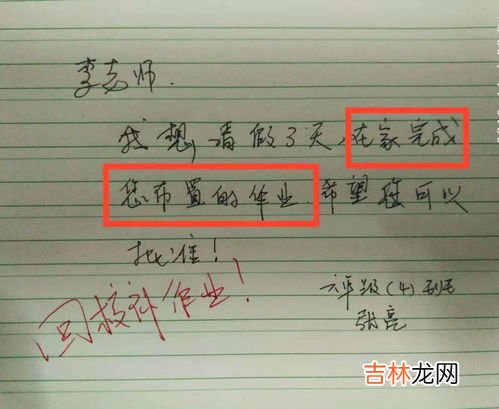 李老师.
我想请假3天,在家完成
您布置的作业.希望您可以
批准!
六年级(4)班
张亮
回校补作业!
吉林龙网